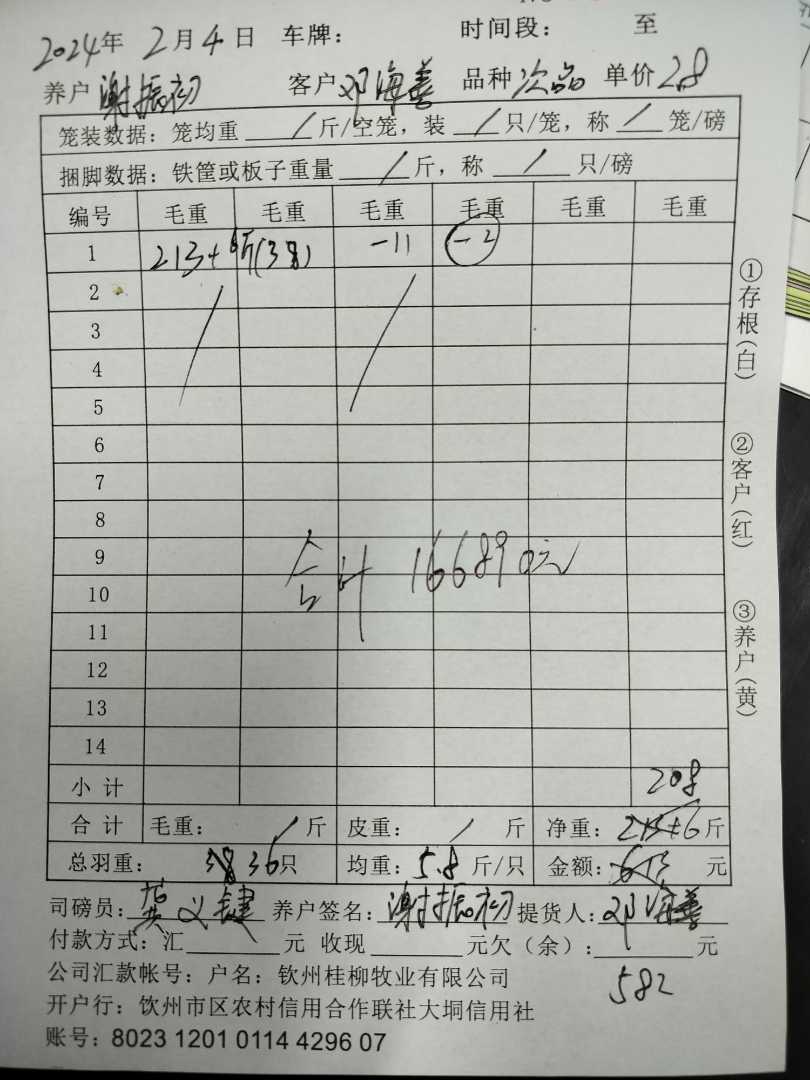 2024年 2月4日 车牌： 时间段： 至
养户 谢振初 客户 邓海善 品种 次品 单价 2.8
笼装数据：笼均重 / 斤/空笼，装 / 只/笼，称 / 笼/磅
捆脚数据：铁筐或板子重量 / 斤，称 / 只/磅
编号 毛重 毛重 毛重 毛重 毛重 毛重
1 213+ 斤(38) -11 -2
2
3
4
5
6
7
8
9 合计 16689元
10
11
12
13
14
小计 208
合计 毛重： / 斤 皮重： / 斤 净重： 斤
总羽重： 36只 均重：5.8 斤/只 金额： 元
司磅员：黄义键 养户签名：谢振初 提货人：邓海善
付款方式：汇 元 收现 元欠（余）： 元
公司汇款帐号：户名：钦州桂柳牧业有限公司 582
开户行：饮州市区农村信用合作联社大垌信用社
账号：8023 1201 0114 4296 07
①存根(白)
②客户(红)
③养户(黄)